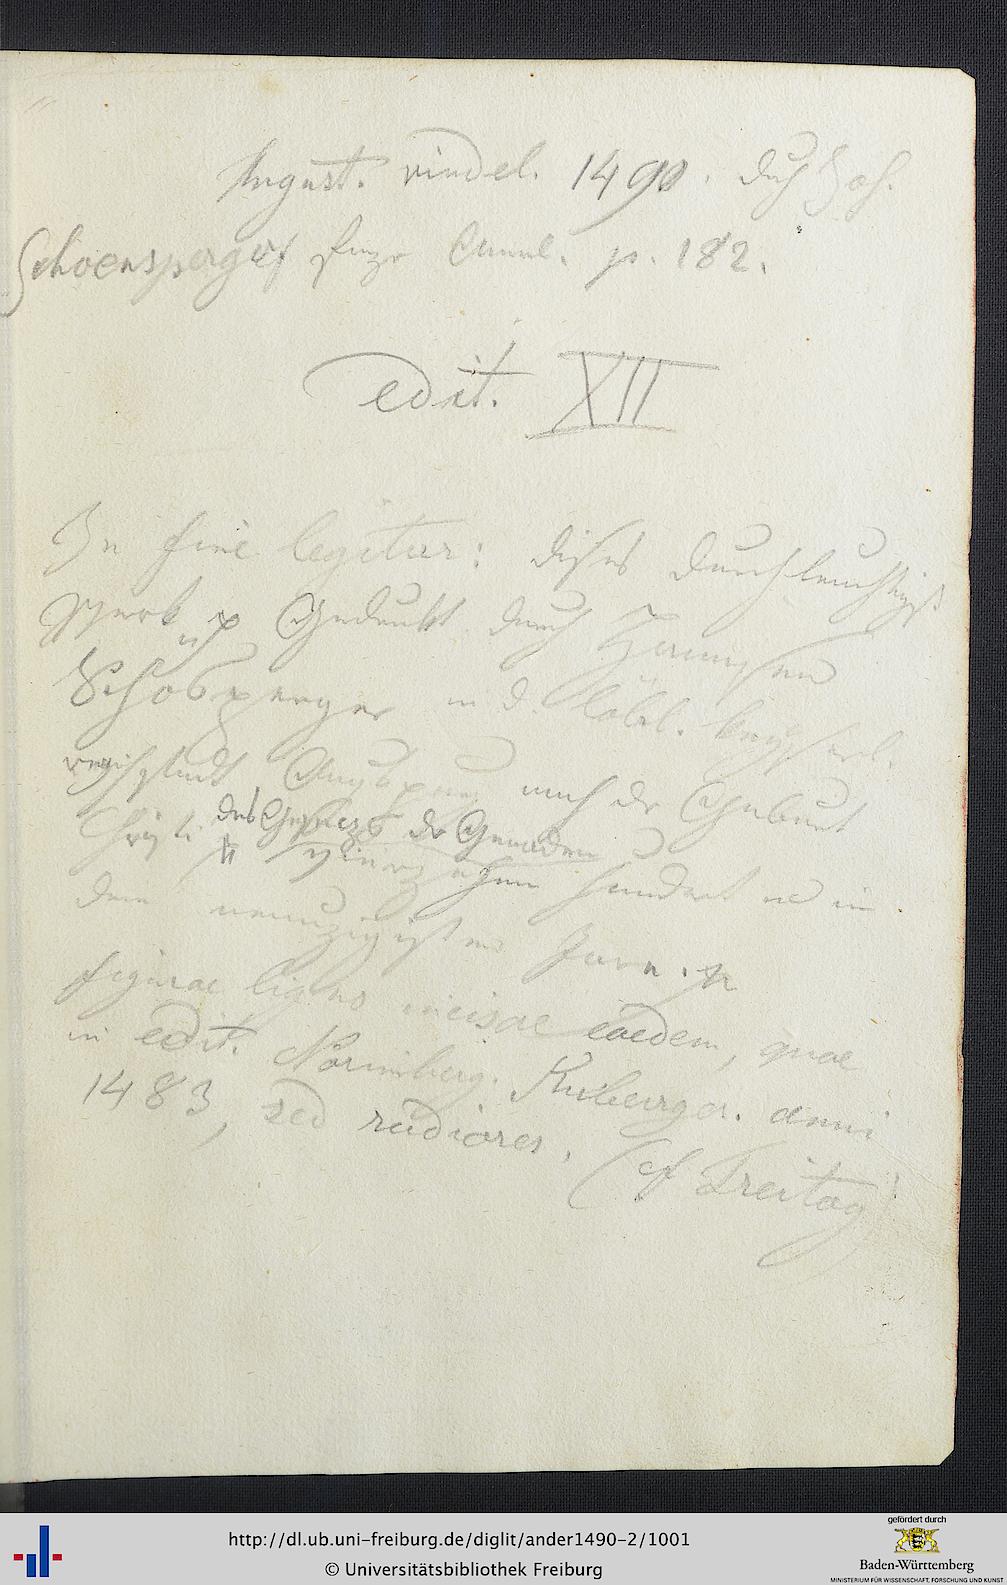 August. vindel. 1490. duch Joh.
Schoensperger Panzr Annal. p. 182.
edit. XII
In fine legitur: dises durchleuchtigst
werk Gedruckt durch Hannsen
Schönsperger in d. löbl. keyserl.
reichstadt Augspurg nach der Geburt
Christi des der Genaden
vierzehen hundert in
dem neunzigisten Jare.
figurae ligno incisae eaedem, quae
in edit. Norimberg. Kuburger. anni
1483, sed rudiores. (cf Freitag)
http://dl.ub.uni-freiburg.de/diglit/ander1490-2/1001
© Universitätsbibliothek Freiburg
gefördert durch
Baden-Württemberg
MINISTERIUM FÜR WISSENSCHAFT, FORSCHUNG UND KUNST